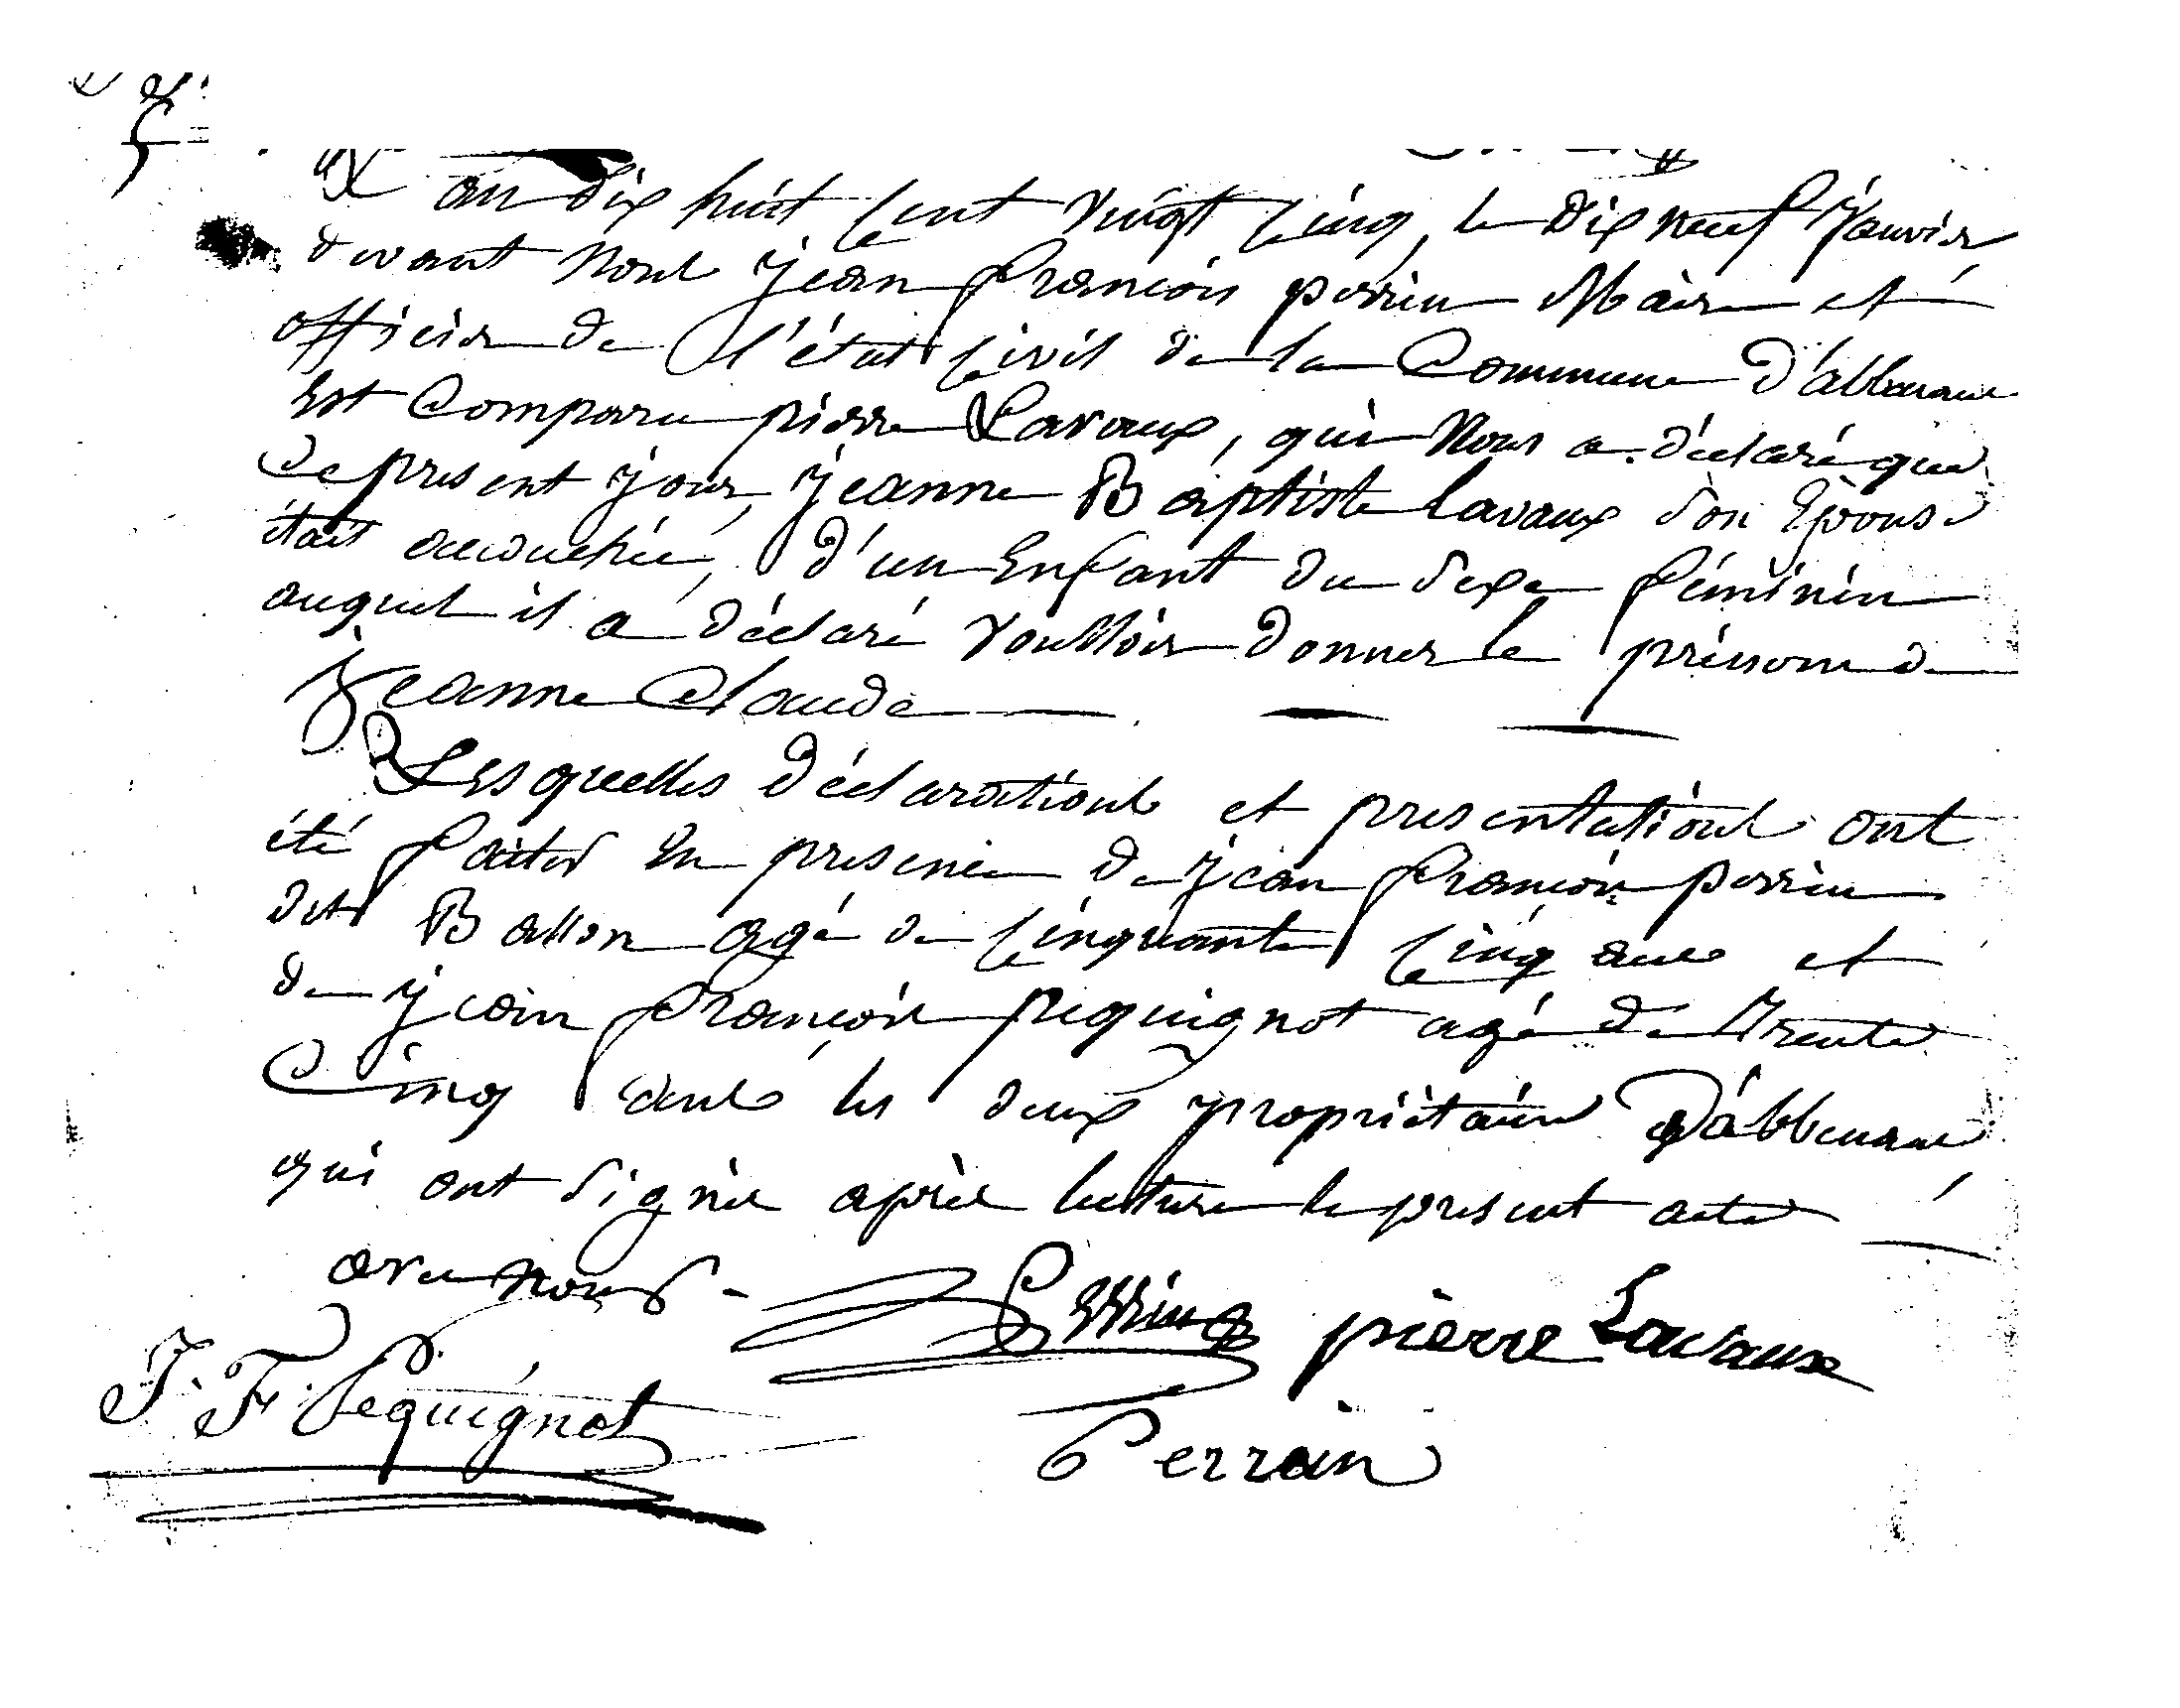 L'an dix huit cent vingt cinq, le dix neuf Janvier
devant nous jean francois perrin Maire et
officier de l'état civil de la Commune d'abbenans
Est Comparu pierre Lavaux, qui nous a déclaré que
ce present jour, jeanne Baptiste Lavaux son Epouse
était accouchée, d'un Enfant du sexe féminin
auquel il a déclaré voulloir donner le prénom de
Jeanne Claude
Lesquelles déclarations et presentations ont
été faites En presence de jean françois perrin
dit Ballon agé de cinquante cinq ans et
de jean françois pequignot agé de Trente
Cinq ans les deux propriétaires D'abbenans
qui ont signés après lecture le present acte
avec nous
Perrin pierre Lavaux
J. F. Pequignot
Perrin